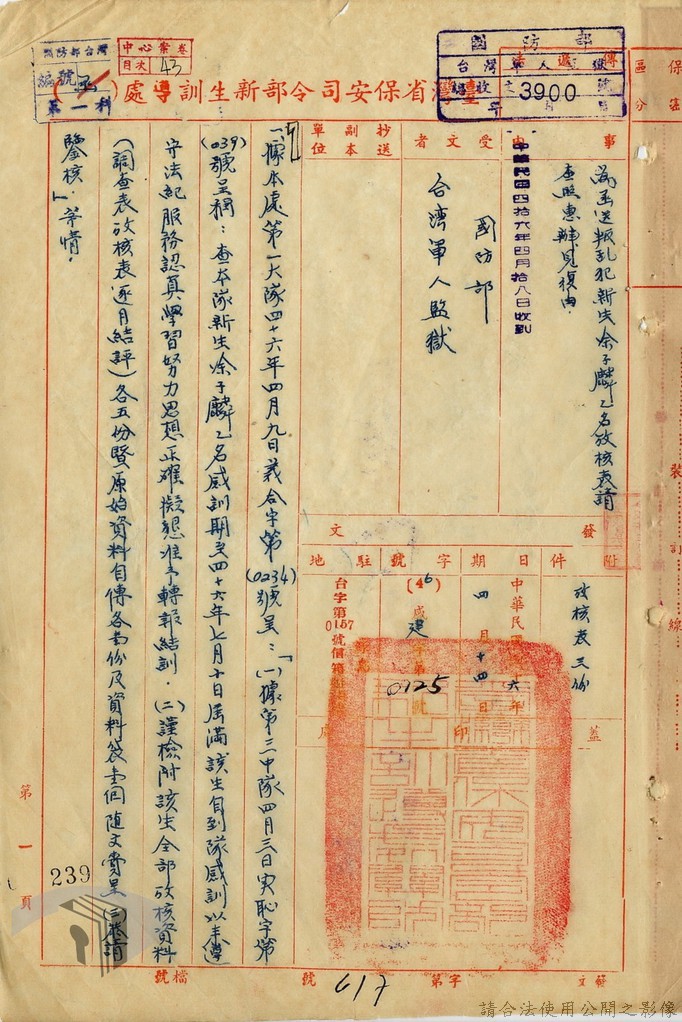 國防部台灣
編號
第一科
中心案卷
目次 43
國防部
台灣軍人監獄
收文
3900
灣省保安司令部新生訓導處
保
區分
事由
為函送叛乱犯新生涂子麟乙名攷核表請
查照惠辦見復由
中華民國四拾六年四月拾八日收到
受文者
國防部
台灣軍人監獄
抄送
副本
單位
附件
攷核表三份
發文
日期
中華民國四十六年
四月十四日
字號
(46)
0125
駐地
台字第
0157
號信箱
蓋印
一、據本處第一大隊四十六年四月九日義合字第(0234)號呈：「(一)據第三中隊四月三日実恥字第
(039)號呈稱：查本隊新生涂子麟乙名感訓期至四十六年七月十日屆滿該生自到隊感訓以来遵
守法紀服務認真學習努力思想正確擬懇准予轉報結訓．(二)謹檢附該生全部攷核資料
(調查表攷核表逐月結評)各五份暨原始資料自傳各壹份及資料袋壹個隨文賫呈(三)恭請
鑒核．」等情．
裝訂線
第一頁
239
檔號
字第 617 號
請合法使用公開之影像